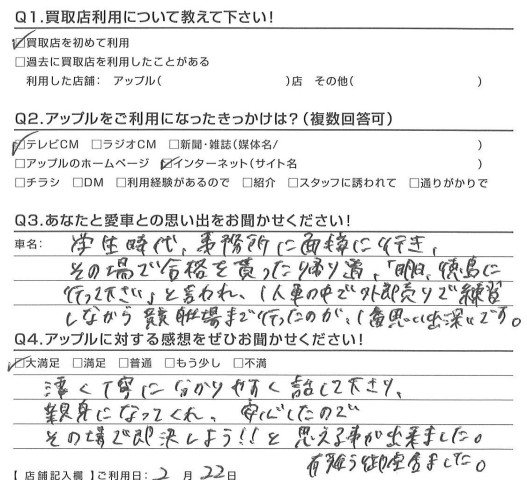 Q1.買取店利用について教えて下さい!
☑買取店を初めて利用
□過去に買取店を利用したことがある
利用した店舗: アップル( )店 その他( )
Q2.アップルをご利用になったきっかけは?(複数回答可)
☑テレビCM □ラジオCM □新聞・雑誌(媒体名/ )
□アップルのホームページ ☑インターネット(サイト名 )
□チラシ □DM □利用経験があるので □紹介 □スタッフに誘われて □通りがかりで
Q3.あなたと愛車との思い出をお聞かせください!
車名: 学生時代、事務所に面接に行き、
その場で合格を貰った帰り道、「明日、徳島に
行って下さい」と言われ、1人車の中で外郎売りで練習
しながら競艇場まで行ったのが、1番思い出深いです。
Q4.アップルに対する感想をぜひお聞かせください!
☑大満足 □満足 □普通 □もう少し □不満
凄く丁寧に分かりやすく話して下さり、
親身になってくれ、安心したので
その場で即決しよう!!と思える事が出来ました。
有難う御座いました。
【 店舗記入欄 】ご利用日: 2 月 22日